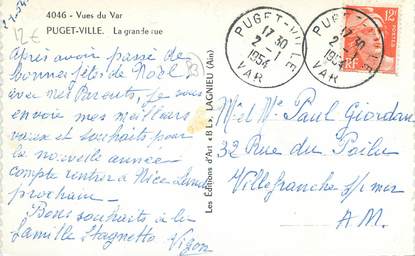 4046 - Vues du Var
PUGET-VILLE. La grande rue
12€
Après avoir passé de
bonnes fêtes de Noël
avec nos Parents, je vous
envoie mes meilleurs
vœux et souhaits pour
la nouvelle année
compte rentrer à Nice Lundi
prochain -
Bons souhaits à la
famille Stagnetto
Les Editions d'Art "B L", LAGNIEU (Ain)
PUGET-VILLE
17 30
2 - 1
1954
VAR
PUGET-VILLE
17 30
2 - 1
1954
VAR
12F
RF
Mr et Me Paul Giordan
32 Rue du Poilu
Villefranche s/mer
A.M.